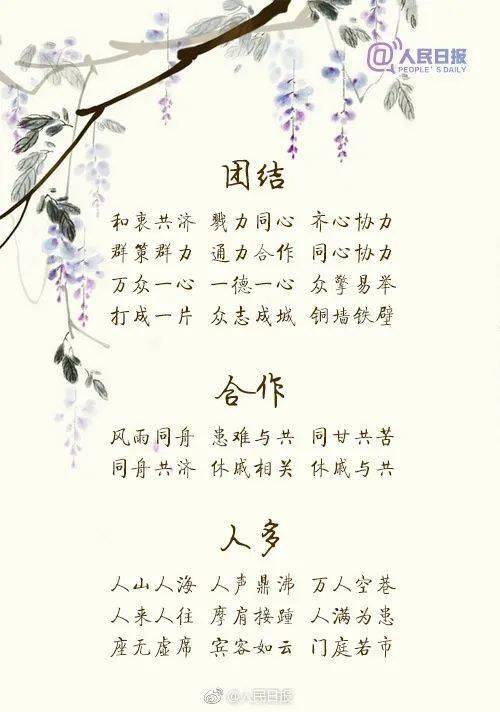 @人民日报
PEOPLE'S DAILY
团结
和衷共济 戮力同心 齐心协力
群策群力 通力合作 同心协力
万众一心 一德一心 众擎易举
打成一片 众志成城 铜墙铁壁
合作
风雨同舟 患难与共 同甘共苦
同舟共济 休戚相关 休戚与共
人多
人山人海 人声鼎沸 万人空巷
人来人往 摩肩接踵 人满为患
座无虚席 宾客如云 门庭若市
@人民日报